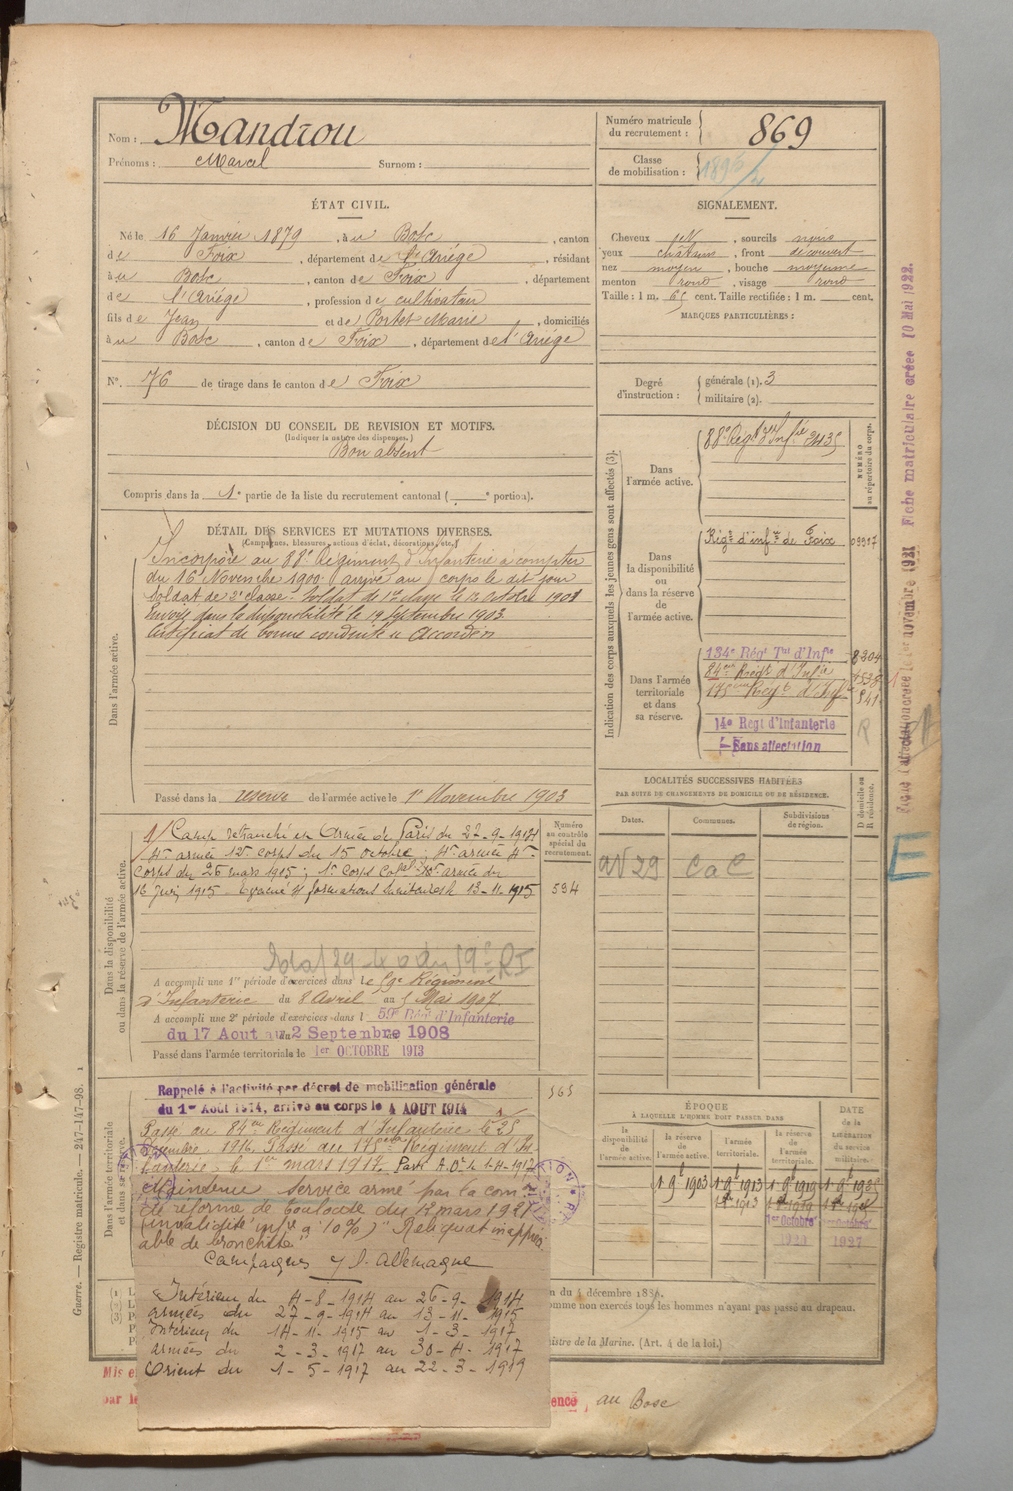 Nom : Mandrou
Prénoms : Marcel Surnom :
Numéro matricule du recrutement : 869
Classe de mobilisation :
ÉTAT CIVIL.
Né le 16 Janvier 1879, à u Bosc, canton
de Foix, département de l'Ariège, résidant
à u Bosc, canton de Foix, département
de l'Ariège, profession de cultivateur
fils de Jean et de Portet Marie, domiciliés
à u Bosc, canton de Foix, département de l'Ariège
N°. 76 de tirage dans le canton de Foix
SIGNALEMENT.
Cheveux , sourcils noirs
yeux châtains, front découvert
nez moyen, bouche moyenne
menton rond, visage rond
Taille : 1 m. 65 cent. Taille rectifiée : 1 m. cent.
MARQUES PARTICULIÈRES :
Degré d'instruction : générale (1). 3
militaire (2).
DÉCISION DU CONSEIL DE REVISION ET MOTIFS.
(Indiquer la nature des dispenses.)
Bon absent
Compris dans la 1e partie de la liste du recrutement cantonal ( e portion).
DÉTAIL DES SERVICES ET MUTATIONS DIVERSES.
(Campagnes, blessures, actions d'éclat, décorations, etc.)
Dans l'armée active.
Incorporé au 88e Régiment d'Infanterie à compter
du 16 Novembre 1900 arrivé au corps le dit jour
Soldat de 2e classe. Soldat de 1re classe le octobre 1901
Envoyé dans la disponibilité le 19 Septembre 1903.
Certificat de bonne conduite accordé
Passé dans la réserve de l'armée active le 1er Novembre 1903
Indication des corps auxquels les jeunes gens sont affectés (3).
NUMÉRO au répertoire du corps.
Dans l'armée active.
88e Régt d'Infie 3435
Dans la disponibilité ou dans la réserve de l'armée active.
Régt d'infie de Foix 03917
Dans l'armée territoriale et dans sa réserve.
134e Régt Tal d'Infie 8204
84me Régt d'Infie
175me Régt d'Inf
14e Régt d'Infanterie R
Sans affectation
Fiche matriculaire créée 10 Mai 1922.
LOCALITÉS SUCCESSIVES HABITÉES
PAR SUITE DE CHANGEMENTS DE DOMICILE OU DE RÉSIDENCE.
D domicile ou R résidence.
Dates. Communes. Subdivisions de région.
av 29 CaC
E
Dans la disponibilité ou dans la réserve de l'armée active.
Numéro au contrôle spécial du recrutement.
Camp retranché et Armée de Paris du 27-9-1914
4e armée 12e corps du 15 octobre ; 4e armée 4e
Corps du 26 mars 1915 ; 1er Corps Cal 10e armée du
16 juin 1915. Evacué s/ formations sanitaires le 13-11-1915
594
A accompli une 1re période d'exercices dans le 59e Régiment
d'Infanterie du 8 Avril au 5 Mai 1907
A accompli une 2e période d'exercices dans l 59e Régt d'Infanterie
du 17 Aout au 2 Septembre 1908
Passé dans l'armée territoriale le 1er OCTOBRE 1913
Dans l'armée territoriale et dans sa réserve.
565
Rappelé à l'activité par décret de mobilisation générale
du 1er Août 1914, arrivé au corps le 4 AOUT 1914
Passé au 84me Régiment d'Infanterie le 25
1916. Passé au 175me Régiment d'In-
fanterie le 1er mars 1917. Parti A.O. le 1-4-1917
Maintenu service armé par la com-
de réforme de Toulouse du 12 mars 1921
(invalidité infre à 10%) "Reliquat inappréci
able de bronchite"
Campagnes c/ l'Allemagne
Intérieur du 4-8-1914 au 26-9-1914
armées du 27-9-1914 au 13-11-1915
Intérieur du 14-11-1915 au 1-3-1917
armées du 2-3-1917 au 30-4-1917
Orient du 1-5-1917 au 22-3-1919
ÉPOQUE
À LAQUELLE L'HOMME DOIT PASSER DANS
la disponibilité de l'armée active. la réserve de l'armée active. l'armée territoriale. la réserve de l'armée territoriale.
DATE de la LIBÉRATION du service militaire.
1 9t 1903 1 9t 1913 1 9t 1919 1 9t 1925
n du 4 décembre 1886.
omme non exercés tous les hommes n'ayant pas passé au drapeau.
nistre de la Marine. (Art. 4 de la loi.)
Guerre. — Registre matricule. — 247-147-98.
Mis e
par le
ence, au Bosc